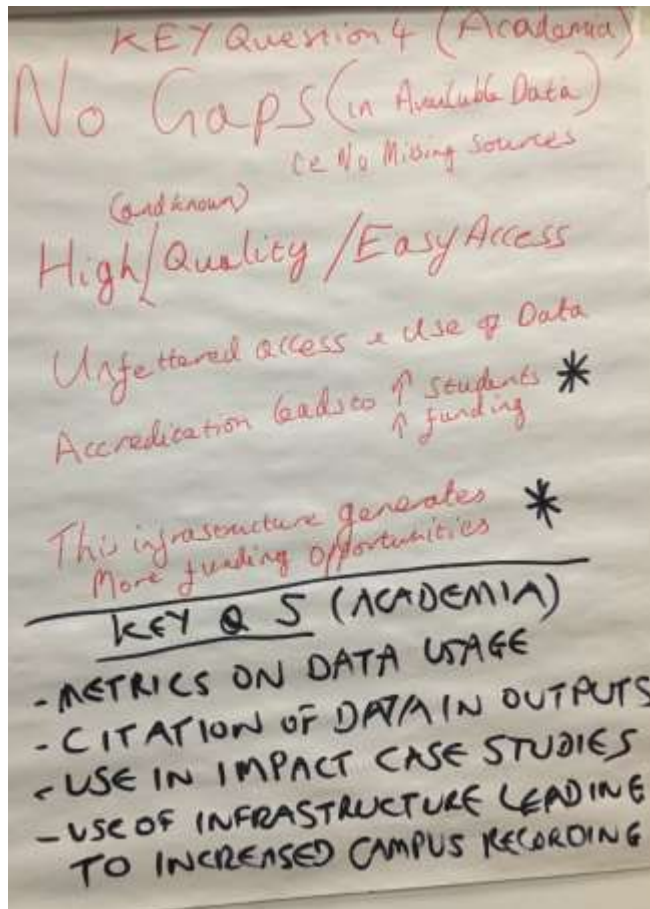 KEY Question 4 (Academia)
No Gaps (in Available Data)
ie No Missing Sources
(and known)
High/Quality/Easy Access
Unfettered access & Use of Data
Accredication leads to ↑ Students *
↑ funding
This infrastructure generates *
More funding opportunities
KEY Q 5 (ACADEMIA)
- METRICS ON DATA USAGE
- CITATION OF DATA IN OUTPUTS
- USE IN IMPACT CASE STUDIES
- USE OF INFRASTRUCTURE LEADING
TO INCREASED CAMPUS RECORDING